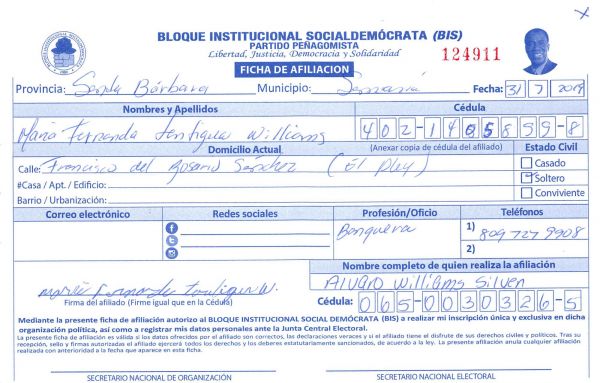 BLOQUE INSTITUCIONAL SOCIALDEMÓCRATA (BIS)
PARTIDO PEÑAGOMISTA
Libertad, Justicia, Democracia y Solidaridad
124911
FICHA DE AFILIACION
Provincia: Santa Bárbara Municipio: Samaná Fecha: 31/7/2019
Nombres y Apellidos Cédula
María Fernanda Williams 402-1405859-8
Domicilio Actual (Anexar copia de cédula del afiliado) Estado Civil
Calle: Francisco del Rosario Sánchez (El Play) Casado
#Casa / Apt. / Edificio: Soltero
Barrio / Urbanización: Conviviente
Correo electrónico Redes sociales Profesión/Oficio Teléfonos
Banquera 1) 809 727 9908
2)
Nombre completo de quien realiza la afiliación
Alvaro Williams Silven
Firma del afiliado (Firme igual que en la Cédula) Cédula: 065-0030326-5
Mediante la presente ficha de afiliación autorizo al BLOQUE INSTITUCIONAL SOCIAL DEMÓCRATA (BIS) a realizar mi inscripción única y exclusiva en dicha
organización política, así como a registrar mis datos personales ante la Junta Central Electoral.
La presente ficha de afiliación es válida si los datos ofrecidos por el afiliado son correctos, las declaraciones veraces y si el afiliado tiene el disfrute de sus derechos civiles y políticos. Tras su
recepción, sello y firmas autorizadas el afiliado ejercerá todos los derechos y los deberes estatutariamente sancionados, de acuerdo a la ley. La presente afiliación anula cualquier afiliación
realizada con anterioridad a la fecha que aparece en esta ficha.
SECRETARIO NACIONAL DE ORGANIZACIÓN SECRETARIO NACIONAL ELECTORAL